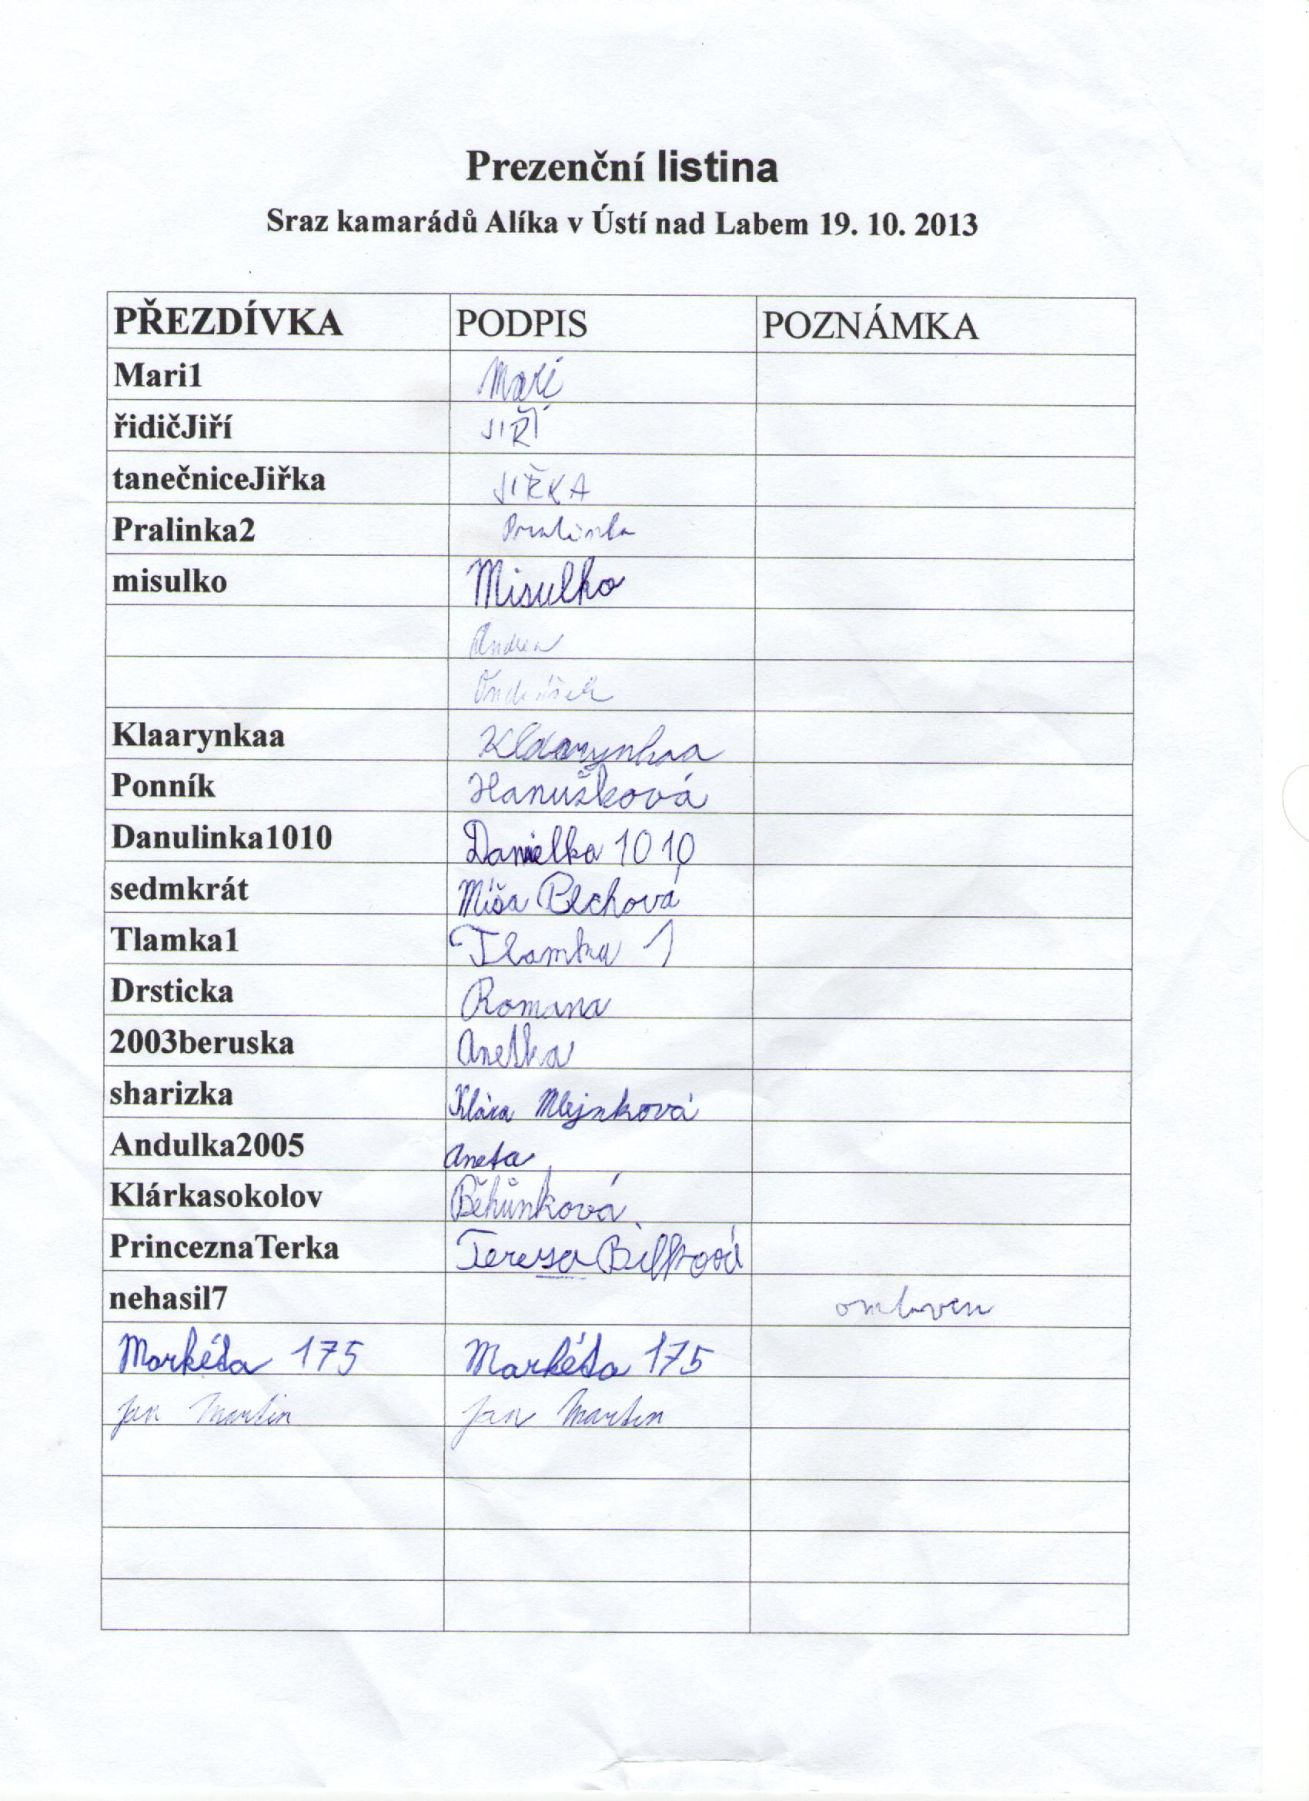 Prezenční listina
Sraz kamarádů Alíka v Ústí nad Labem 19. 10. 2013
PŘEZDÍVKA PODPIS POZNÁMKA
Mari1 Mari
řidičJiří JIŘÍ
tanečniceJiřka JIŘKA
Pralinka2 Pralinka
misulko Misulko
Andrea
Klaarynkaa Klaarynkaa
Ponník Hanušková
Danulinka1010 Danielka 1010
sedmkrát Míša Pechová
Tlamka1 Tlamka 1
Drsticka Romana
2003beruska Anetka
sharizka Klára Mlejnková
Andulka2005 Aneta
Klárkasokolov Běhůnková
PrinceznaTerka Tereza
nehasil7 omluven
Markéta 175 Markéta 175
Jan Martin Jan Martin